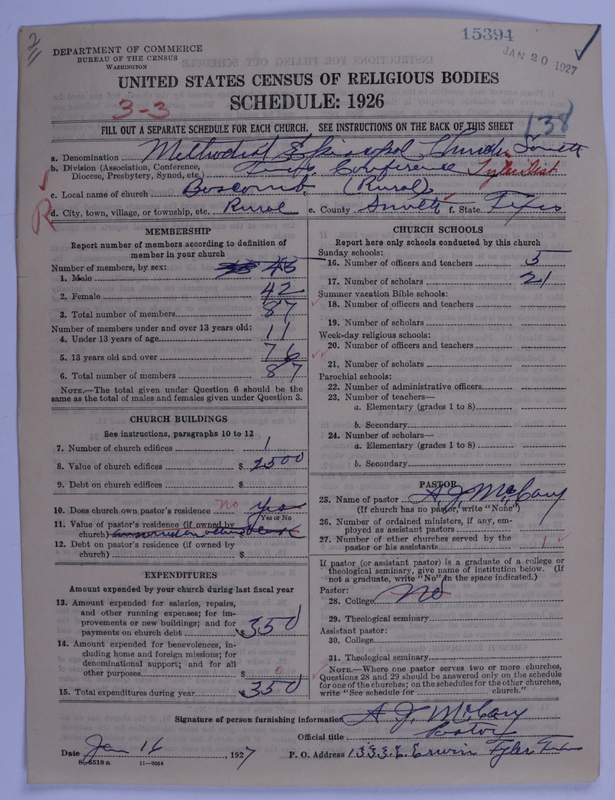 15394
JAN 20 1927
DEPARTMENT OF COMMERCE
BUREAU OF THE CENSUS
WASHINGTON
UNITED STATES CENSUS OF RELIGIOUS BODIES
SCHEDULE: 1926
3-3
138
FILL OUT A SEPARATE SCHEDULE FOR EACH CHURCH. SEE INSTRUCTIONS ON THE BACK OF THIS SHEET
a. Denomination Methodist Episcopal Church South
b. Division (Association, Conference, Diocese, Presbytery, Synod, etc.) Texas Conference Tyler Dist
c. Local name of church Boscomb (Rural)
d. City, town, village, or township, etc. Rural e. County Smith f. State Texas
R
MEMBERSHIP
Report number of members according to definition of
member in your church
Number of members, by sex:
1. Male 45
2. Female 42
3. Total number of members 87
Number of members under and over 13 years old:
4. Under 13 years of age 11
5. 13 years old and over 76
6. Total number of members 87
NOTE.—The total given under Question 6 should be
same as the total of males and females given under Question 3.
CHURCH BUILDINGS
See instructions, paragraphs 10 to 12
7. Number of church edifices 1
8. Value of church edifices $ 2500
9. Debt on church edifices $
10. Does church own pastor's residence no Yes
Yes or No
11. Value of pastor's residence (if owned by
church)
12. Debt on pastor's residence (if owned by
church) $
EXPENDITURES
Amount expended by your church during last fiscal year
13. Amount expended for salaries, repairs,
and other running expenses; for im-
provements or new buildings; and for
payments on church debt $ 350
14. Amount expended for benevolences, in-
cluding home and foreign missions; for
denominational support; and for all
other purposes $ 0
15. Total expenditures during year $ 350
CHURCH SCHOOLS
Report here only schools conducted by this church
Sunday schools:
16. Number of officers and teachers 5
17. Number of scholars 21
Summer vacation Bible schools:
18. Number of officers and teachers
19. Number of scholars
Week-day religious schools:
20. Number of officers and teachers
21. Number of scholars
Parochial schools:
22. Number of administrative officers
23. Number of teachers—
a. Elementary (grades 1 to 8)
b. Secondary
24. Number of scholars—
a. Elementary (grades 1 to 8)
b. Secondary
PASTOR
25. Name of pastor A. J. McCary
(If church has no pastor, write "None")
26. Number of ordained ministers, if any, em-
ployed as assistant pastors
27. Number of other churches served by the
pastor or his assistants 1
If pastor (or assistant pastor) is a graduate of a college or
theological seminary, give name of institution below. (If
not a graduate, write "No" in the space indicated.)
Pastor:
28. College No
29. Theological seminary
Assistant pastor:
30. College
31. Theological seminary
NOTE.—Where one pastor serves two or more churches,
Questions 28 and 29 should be answered only on the schedule
for one of the churches; on the schedules for the other churches,
write "See schedule for church."
Signature of person furnishing information A. J. McCary
Official title Pastor
Date Jan 14, 1927 P. O. Address 1333 E. Erwin Tyler Texas
8-5518 a 11-9064